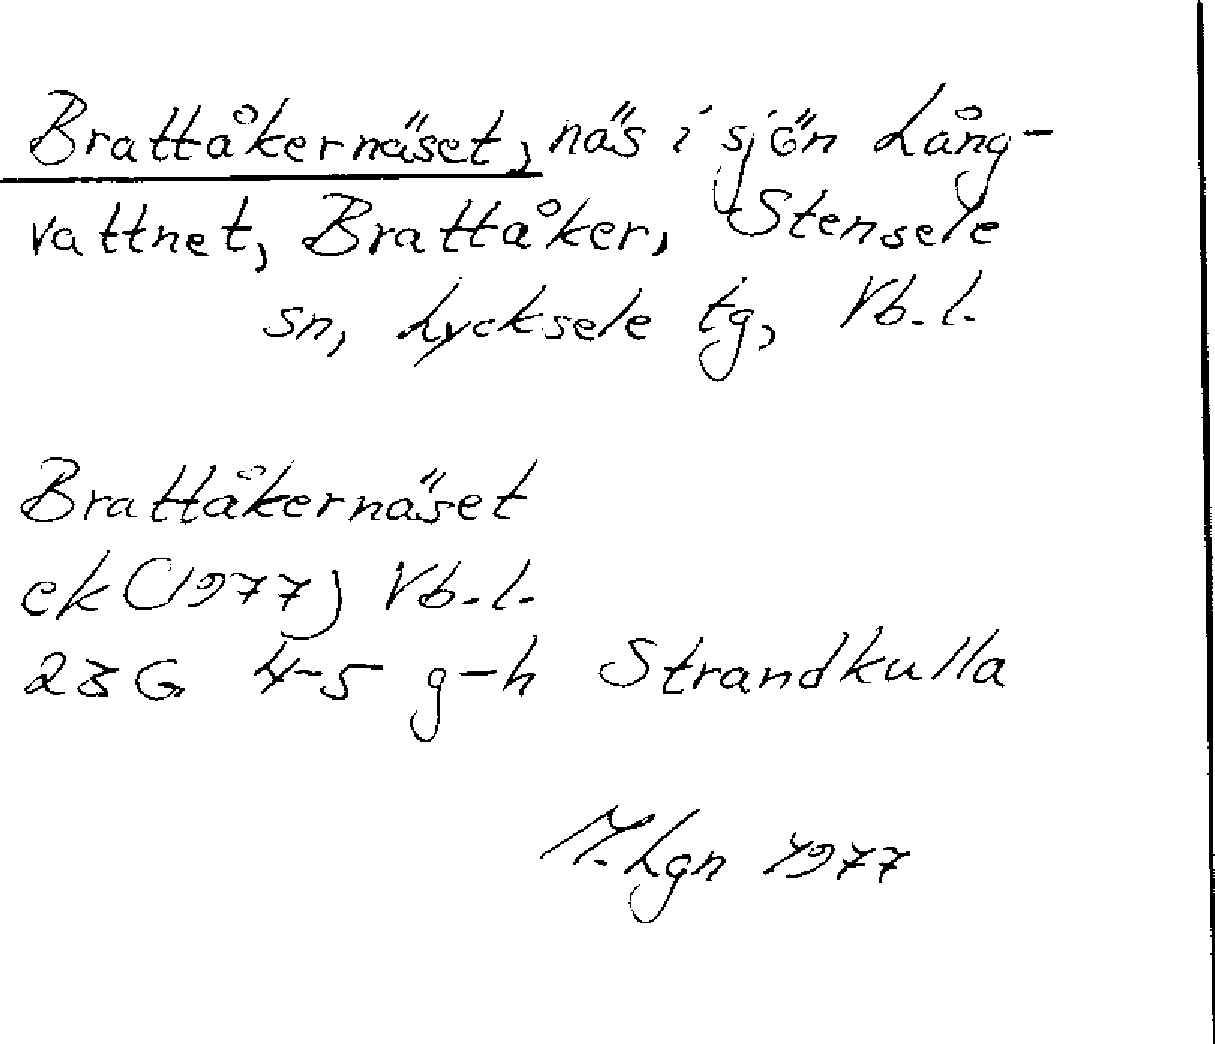 Brattåkernäset, näs i sjön Lång-
vattnet, Brattåker, Stensele
sn, Lycksele tg, Vb.l.
Brattåkernäset
ek (1977) Vb.l.
23G 4-5 g-h Strandkulla
M.Lgn 1977